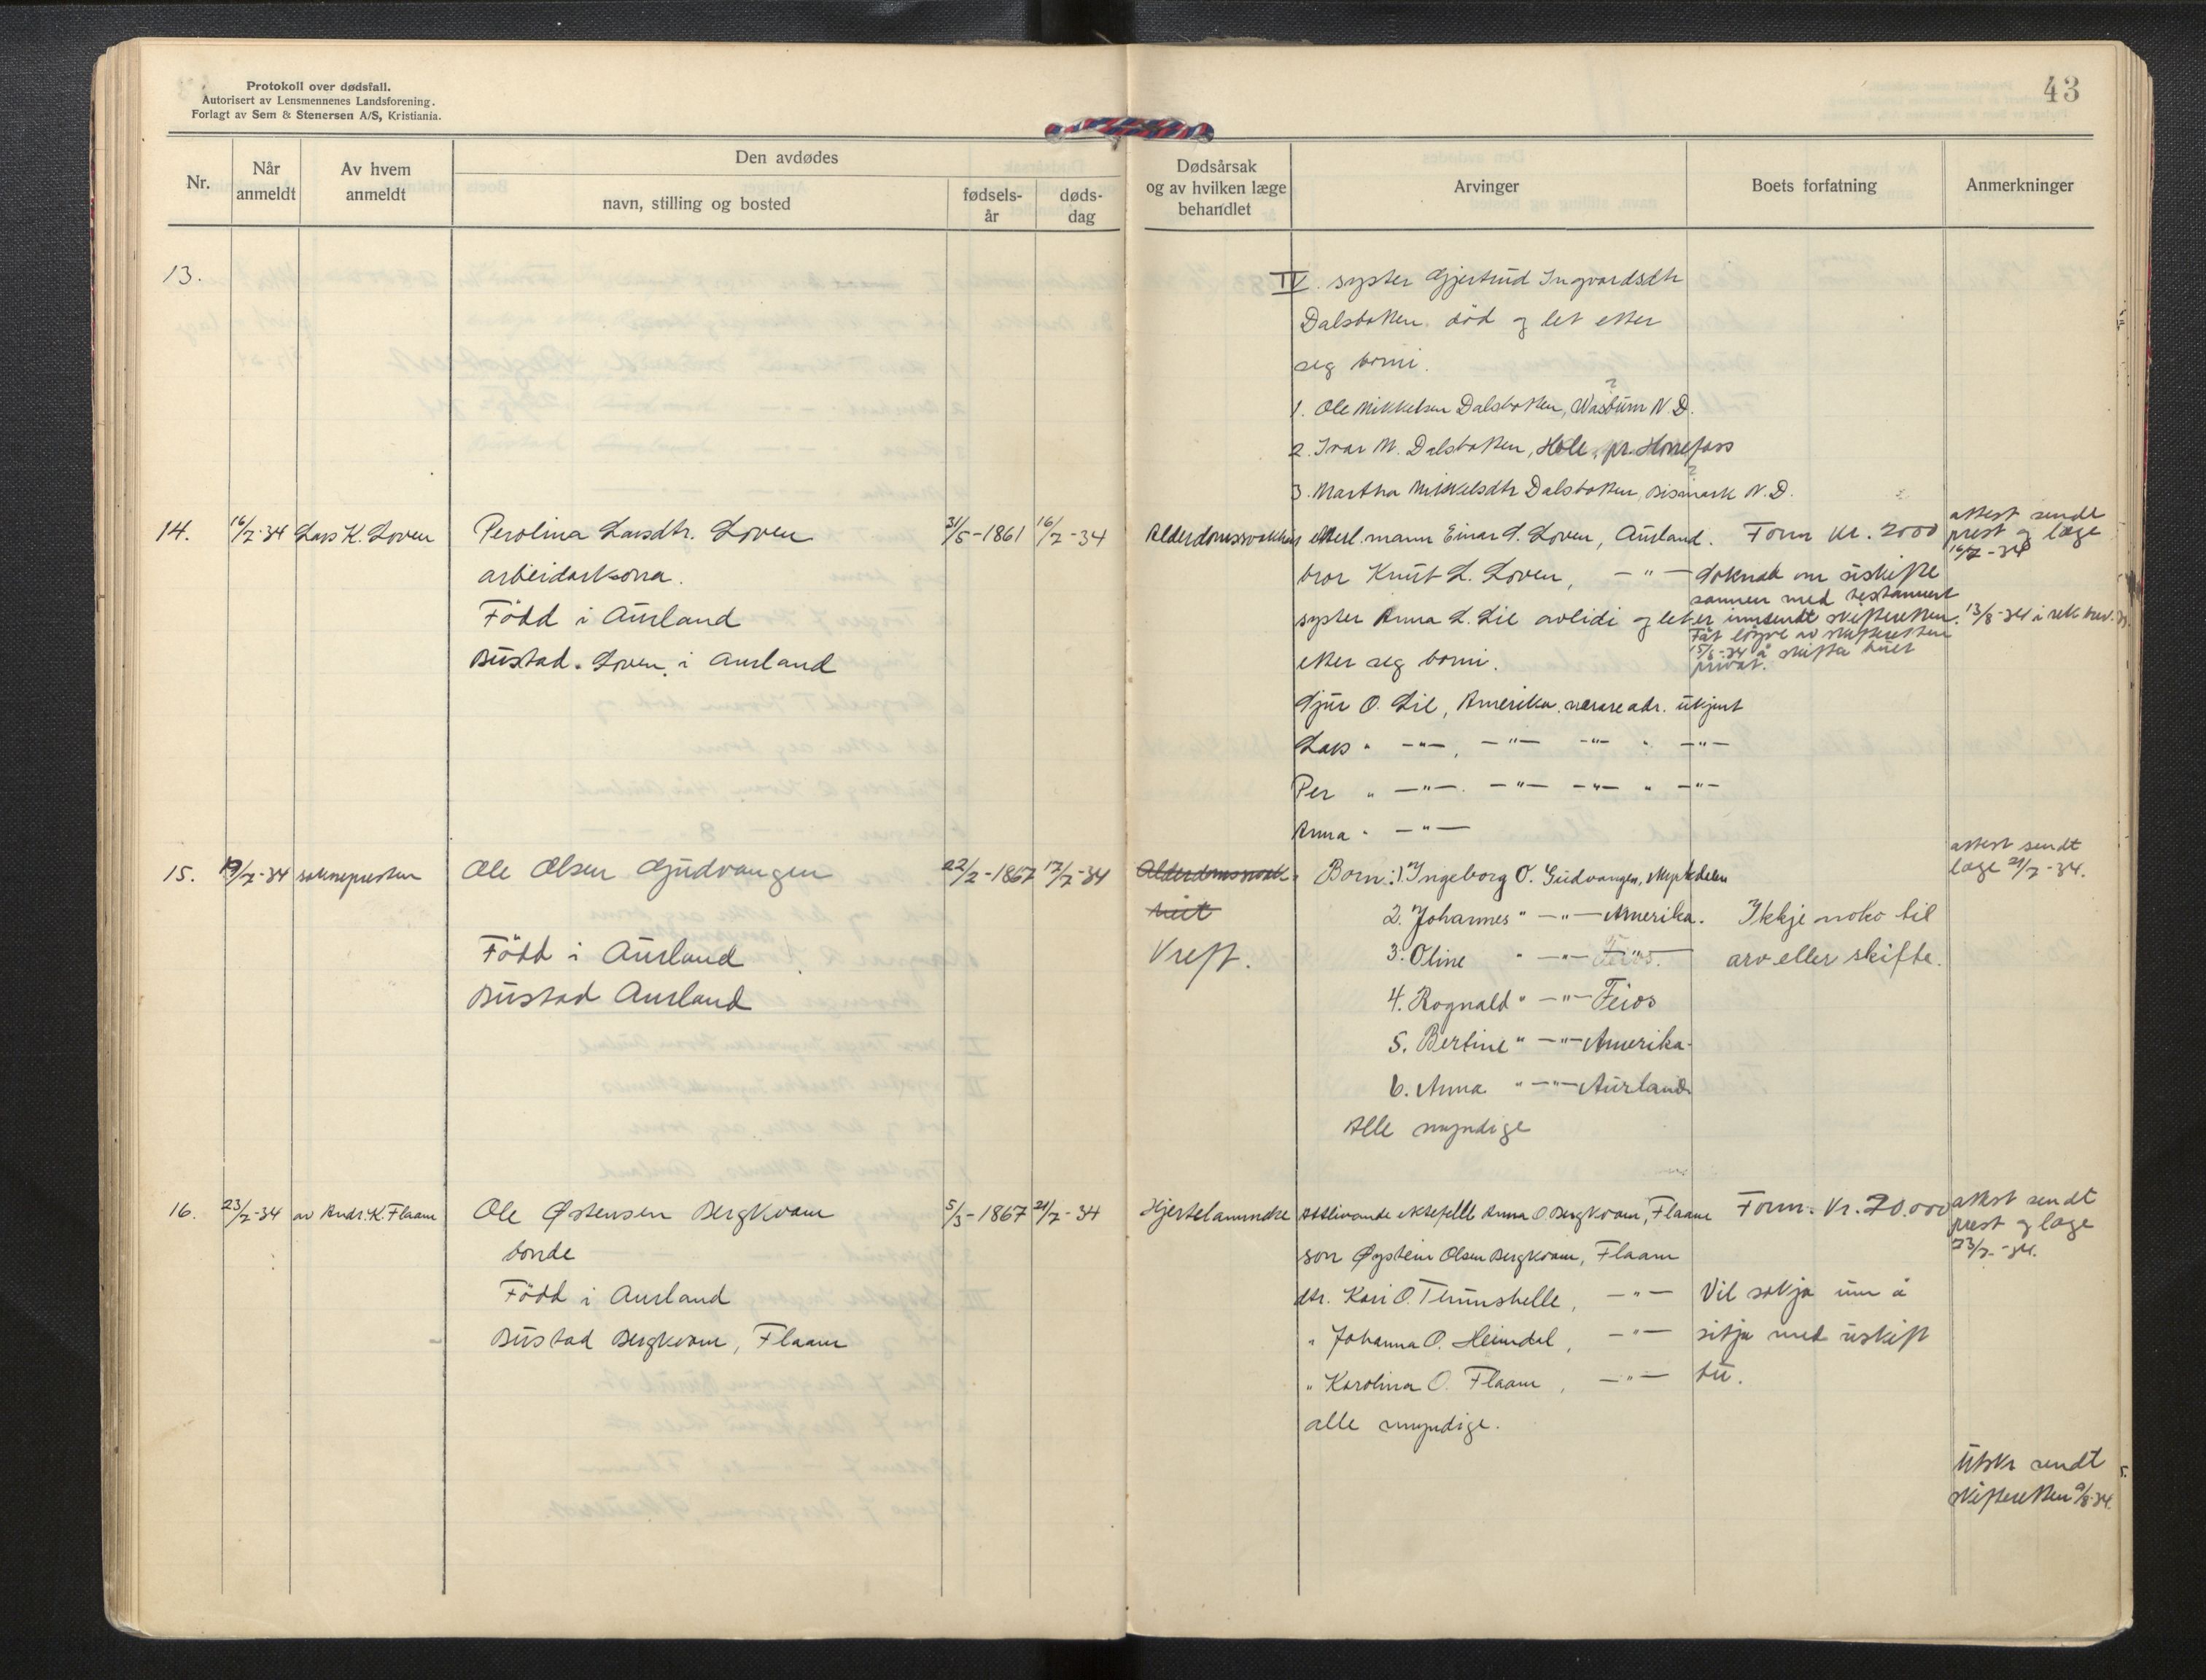 Protokoll over dødsfall.
Autorisert av Lensmennenes Landsforening.
Forlagt av Sem & Stenersen A/S, Kristiania.
43
Nr.
Når anmeldt
Av hvem anmeldt
Den avdødes
navn, stilling og bosted
fødsels-år
døds-dag
Dødsårsak og av hvilken læge behandlet
Arvinger
Boets forfatning
Anmerkninger
13.
IV. syster Gjertrud Ingvardsdtr
Dalsbotten. död og let etter
seg born.
1. Ole Mikkelsen Dalsbotten, Wasburn N.D.
2. Ivar M. Dalsbotten, Hole, pr. Hønefoss
3. Martha Mikkelsdtr Dalsbotten, Bismark N.D.
14. 16/7-34 Lars K. Loven
Perolina Larsdtr. Loven
31/5-1861 16/7-34
arbeidarkona.
Född i Aurland
Bustad. Loven i Aurland
etterl. mann Einar S. Loven, Aurland.
bror Knut L. Loven, —"—
syster Anna L. Lie avlidi og let
etter seg born.
Sjur O. Lie, Amerika. nærare adr. ukjent
Lars " —"—, —"— —"— " —"—
Per " —"—. —"— —"— " —"—
Anna " —"—
Form kr. 2000
Søknad om uskifte
saman med testament
er innsendt skifteretten.
Fåt løyve av skifteretten
15/8-34 å skifta buet
privat.
attest sendt
prest og læge
16/7-34
13/8-34 i rek brev.
15. 19/7-34 soknepresten
Ole Olsen Gudvangen
22/2-1867 17/7-34
Född i Aurland
Bustad Aurland
Alderdomssvak-
heit
Kreft.
Born: 1. Ingeborg O. Gudvangen, Myrkdalen
2. Johannes " —"— Amerika.
3. Oline " —"— Feios.
4. Rognald " —"— Feios
5. Bertine " —"— Amerika.
6. Anna " —"— Aurland
Alle myndige
Ikkje noko til
arv eller skifte.
attest sendt
læge 21/7-34.
16. 23/7-34 av Andr. K. Flaam
Ole Østensen Bergkvam
5/3-1867 21/7-34
bonde
Född i Aurland
Bustad Bergkvam, Flaam
Hjertelammelse
Attlivande ektefelle Anna O Bergkvam, Flaam
son Øystein Olsen Bergkvam, Flaam
dtr. Kari O. Tunshelle, —"—
" Johanna O. Heimdal, —"—
" Karolina O. Flaam, —"—
alle myndige.
Form. kr. 20.000
Vil søkja um å
sitja med uskift
bu.
attest sendt
prest og læge
23/7-34.
Utskr sendt
skifteretten 9/8-34.